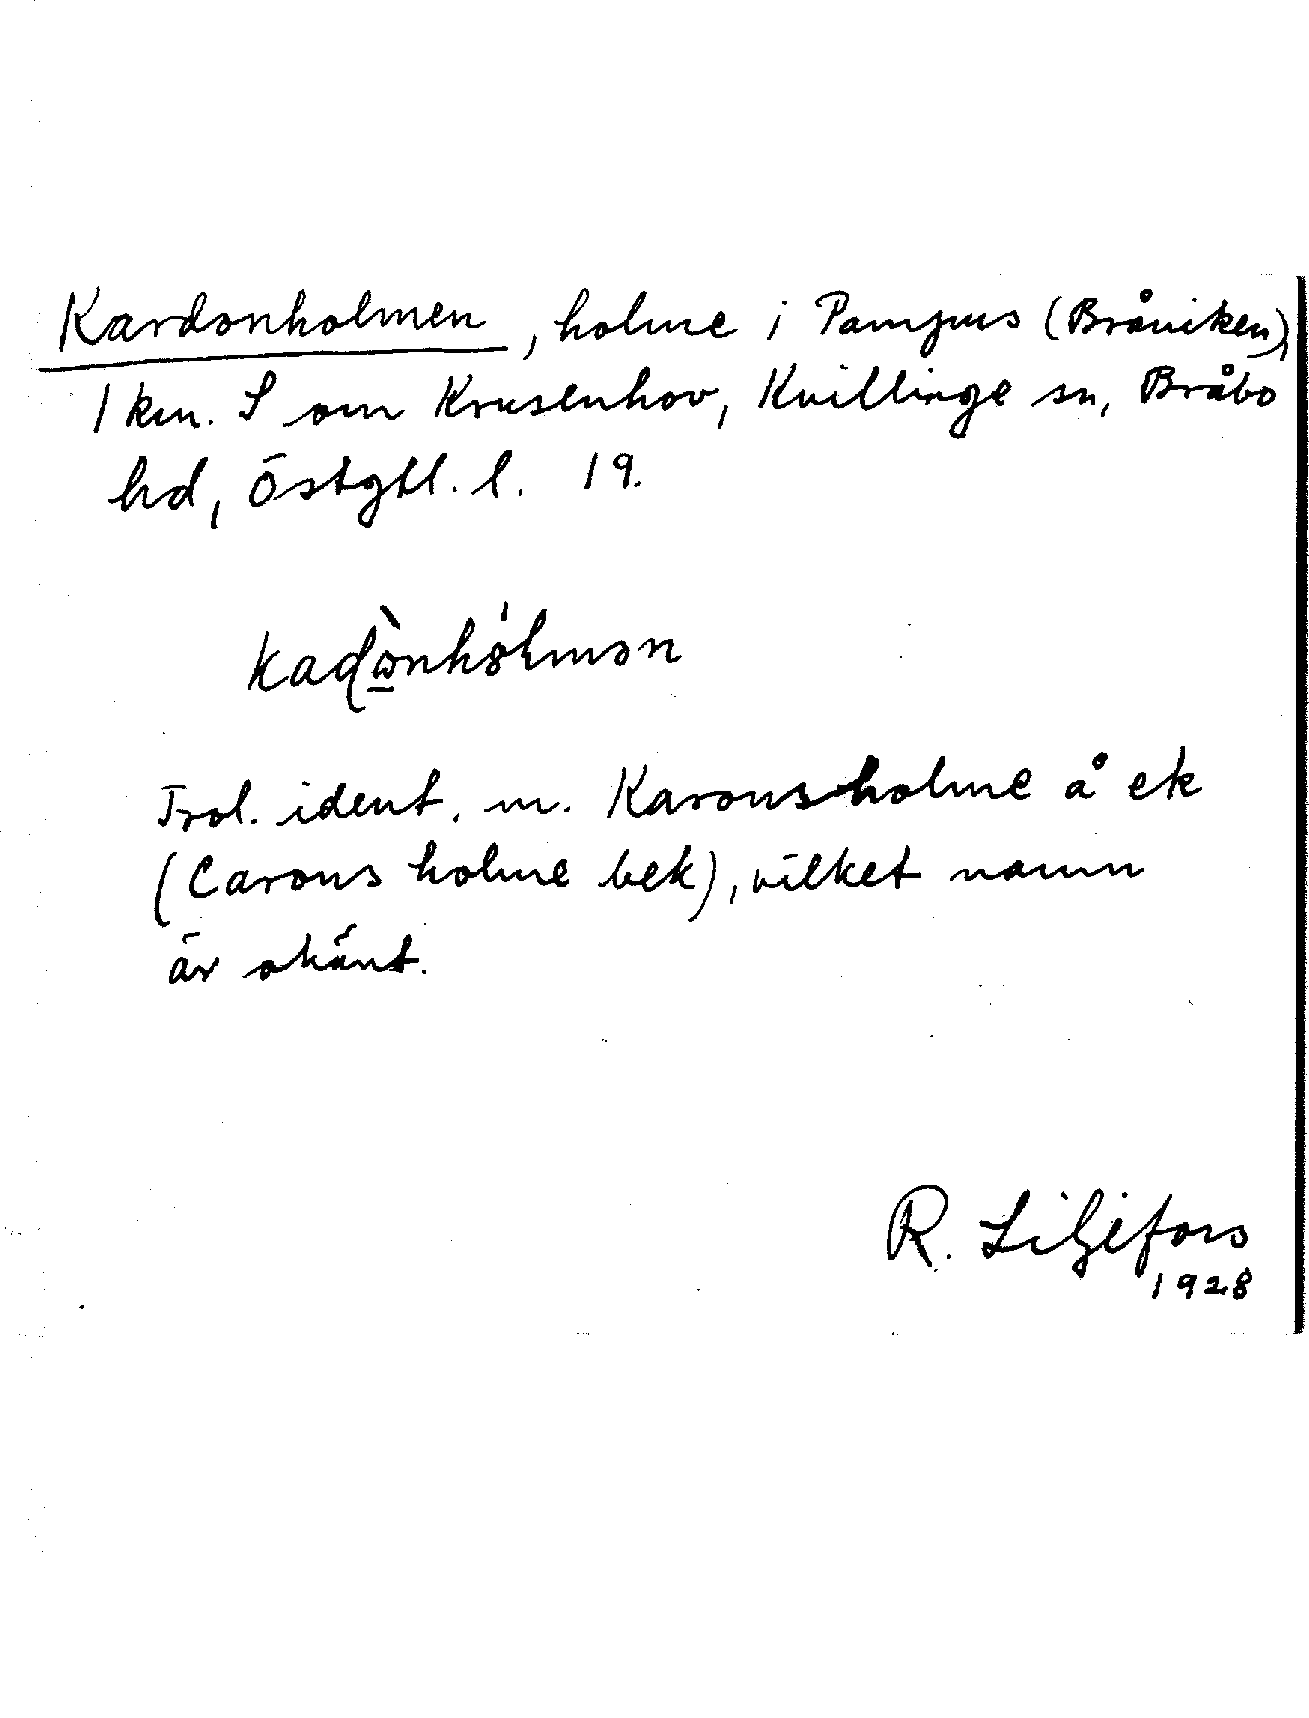 Kardonholmen, holme i Pampus (Bråviken),
1 km. S om Krusenhov, Kvillinge sn, Bråbo
hd, Östgtl. l. 19.
Trol. ident. m. Karonsholme å ek
(Carons holme bek), vilket namn
är okänt.
R. Liljefors
1928